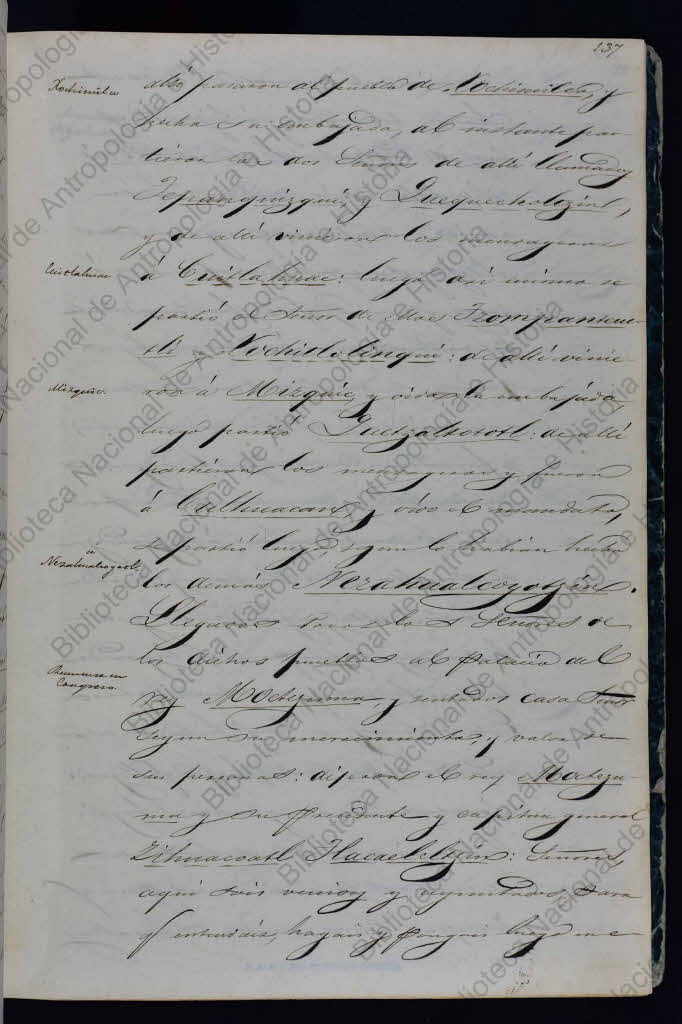 137
Xochimilco
allí pasaron al pueblo de Xochimilco, y
hecha su embajada, al instante par-
tieron los dos Señores de allí llamados
Tepanquizqui, y Quequecholtzin,
y de allí vinieron los mensageros
Cuitlahuac
á Cuitlahuac: luego así mismo se
partió el Señor de ellos Tzompanteuc-
tli y Xochitlolinqui: de allí vinie-
Mizquic.
ron á Mizquic, y oida la embajada,
luego partió Quetzaltototl: de allí
partieron los mensageros y fueron
á Culhuacan, y oido el mandato,
se partió luego segun lo habian hecho
Nezahualcoyotl
los demás Nezahualcoyotzin.
Llegados todos los Señores de
los dichos pueblos al Palacio del
Reunense en
Congreso.
rey Moctezuma, y sentados cada Señor
segun su merecimiento, y valor de
sus personas: dijeron el rey Moctezu-
ma y su Presidente y capitan general
Zihuacoatl Tlacaeleltzin: Señores,
aquí sois venidos y ayuntados para
q entendais, hagais y pongais luego en e-
Biblioteca Nacional de Antropología e Historia